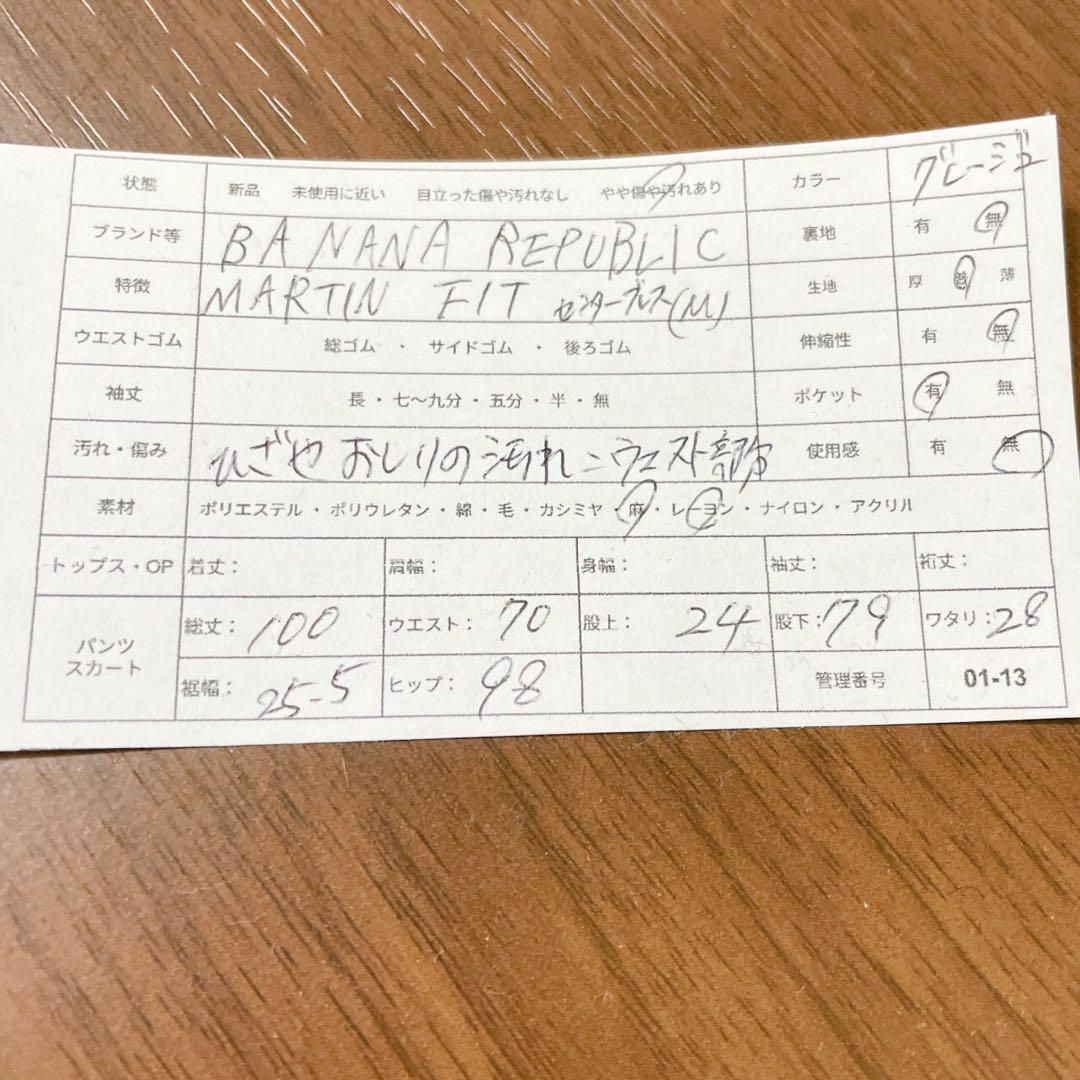 状態 新品 未使用に近い 目立った傷や汚れなし やや傷や汚れあり カラー グレージュ
ブランド等 BANANA REPUBLIC 裏地 有 無
特徴 MARTIN FIT センタープレス(M) 生地 厚 普 薄
ウエストゴム 総ゴム ・ サイドゴム ・ 後ろゴム 伸縮性 有 無
袖丈 長・七〜九分・五分・半・無 ポケット 有 無
汚れ・傷み ひざやおしりの汚れ ウエスト部 使用感 有 無
素材 ポリエステル・ポリウレタン・綿・毛・カシミヤ・麻・レーヨン・ナイロン・アクリル
トップス・OP 着丈: 肩幅: 身幅: 袖丈: 裄丈:
パンツ スカート 総丈: 100 ウエスト: 70 股上: 24 股下: 79 ワタリ: 28
裾幅: 25-5 ヒップ: 98 管理番号 01-13